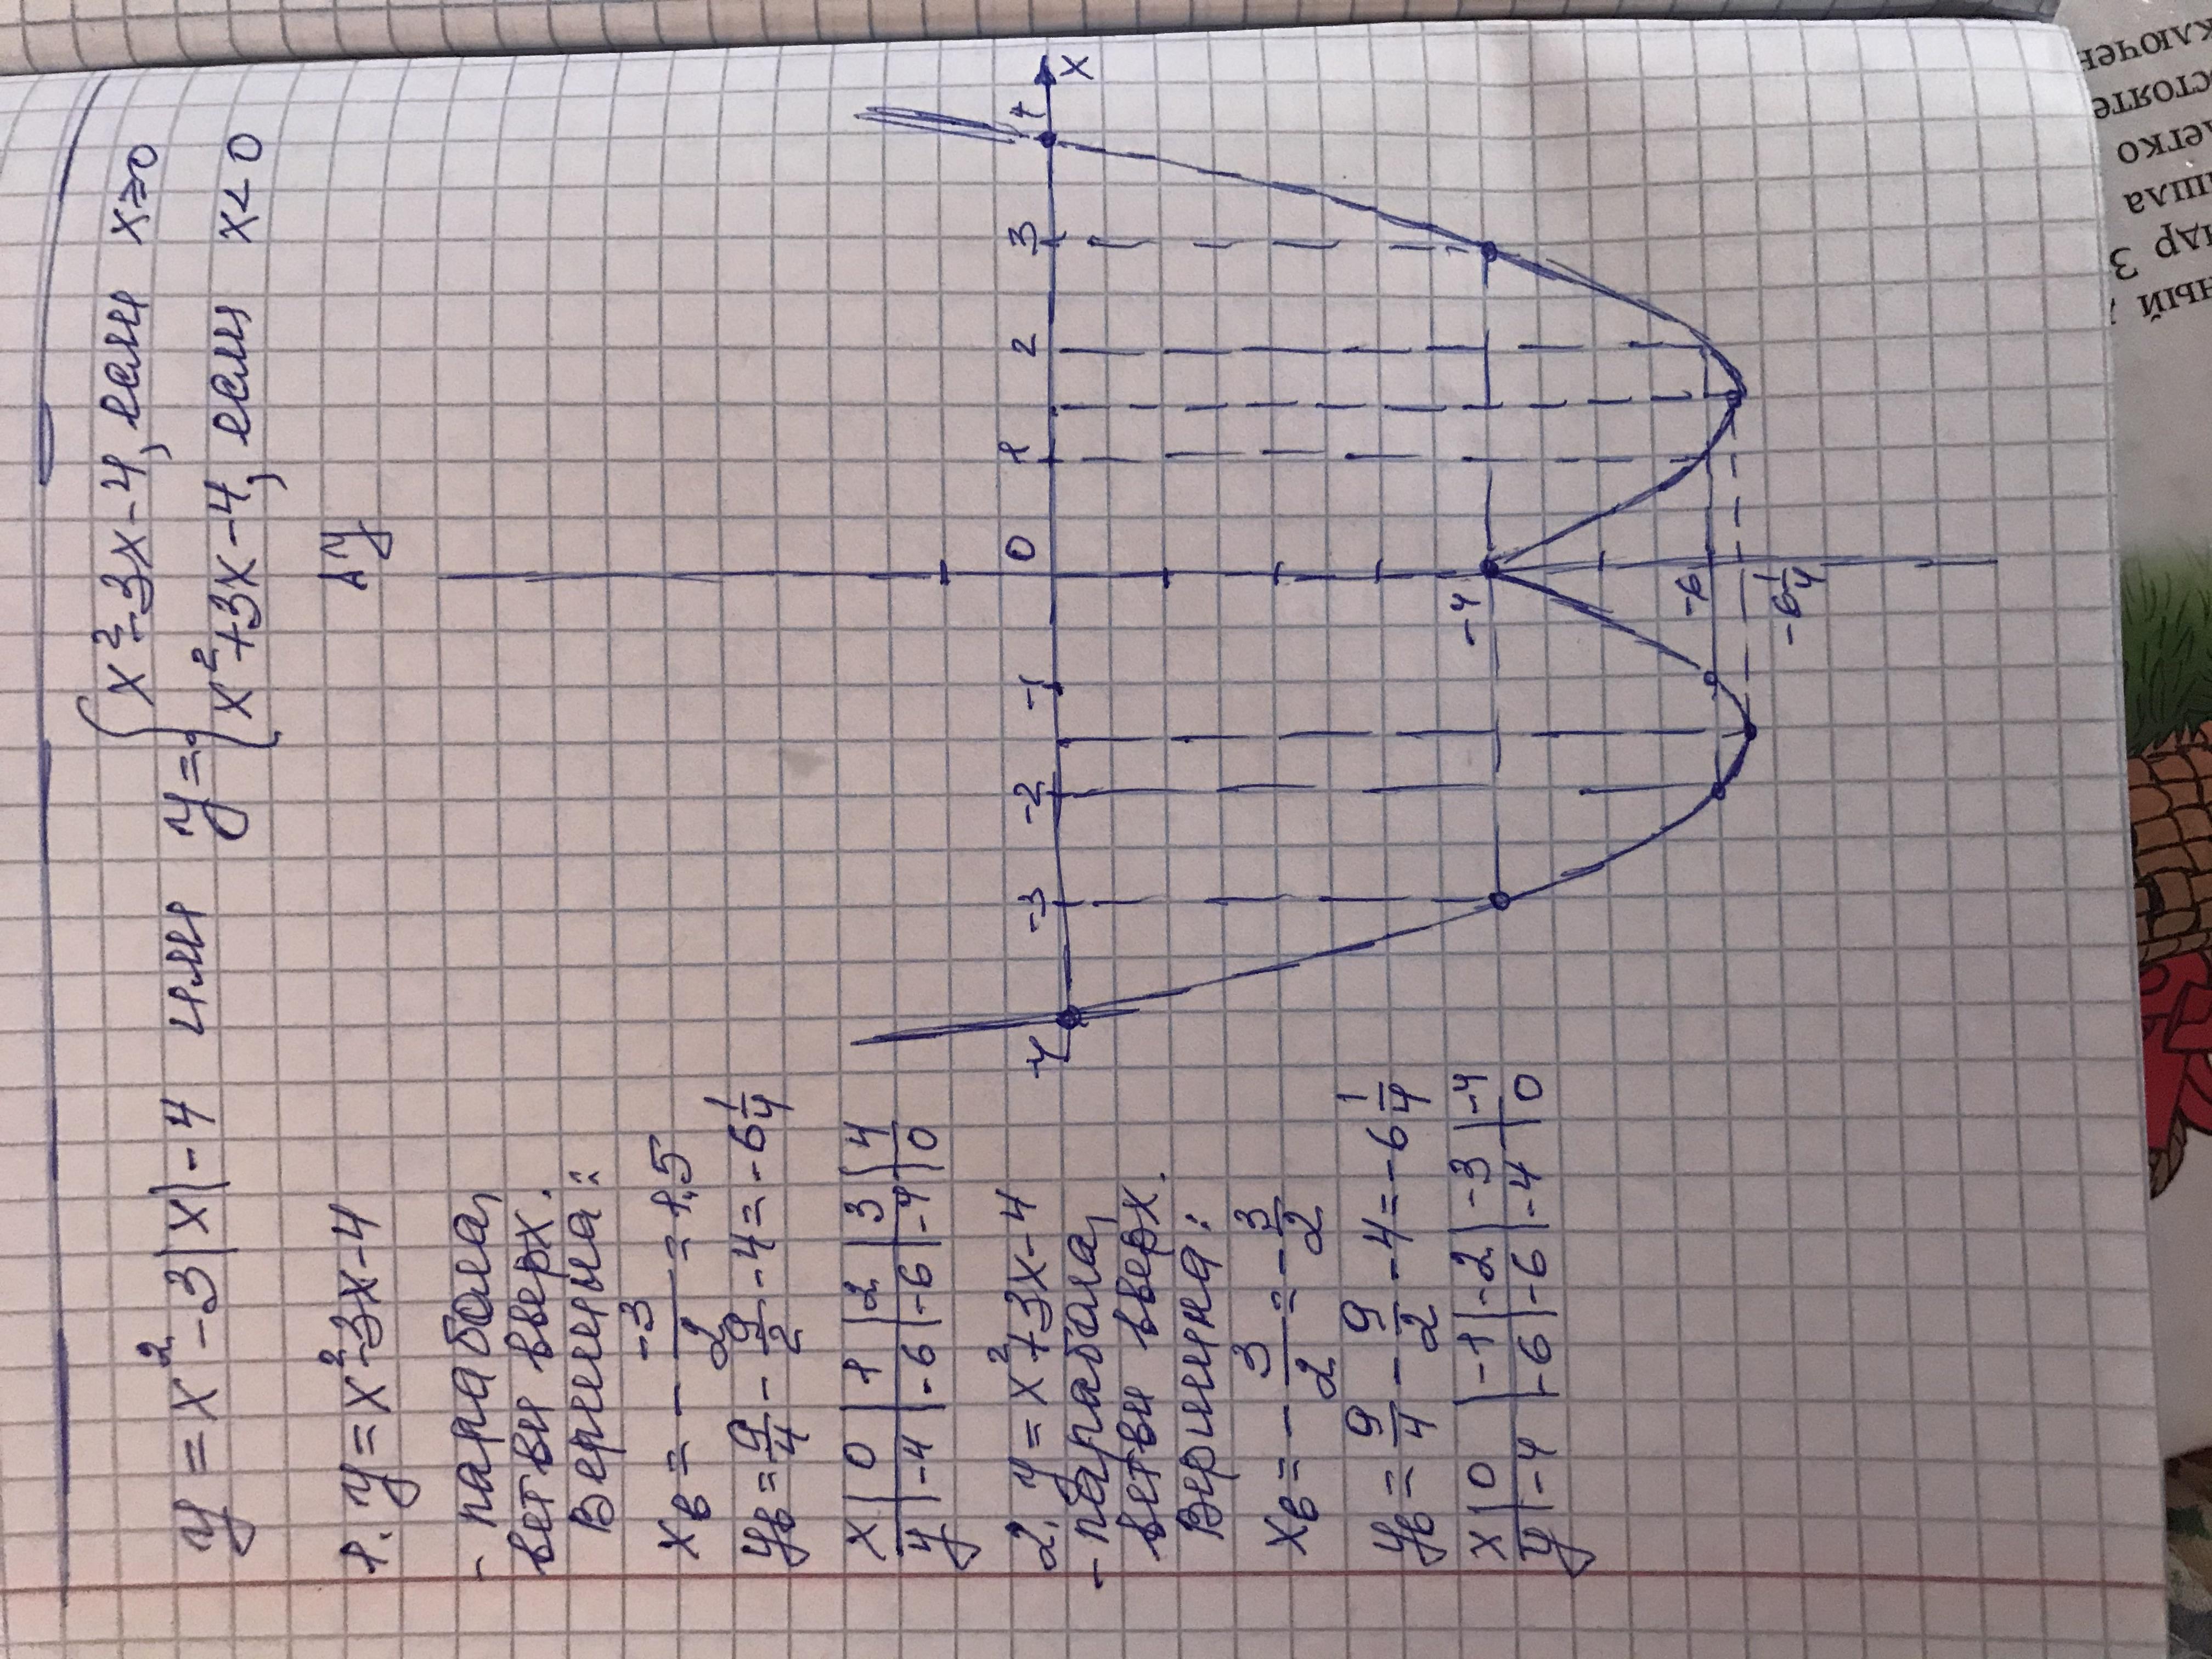 y = x² - 3|x| - 4 или y = { x² - 3x - 4, если x ≥ 0
x² + 3x - 4, если x < 0
1. y = x² - 3x - 4
- парабола,
ветви вверх.
Вершина:
xв = - -3/2 = 1,5
yв = 9/4 - 9/2 - 4 = -6 1/4
x | 0 | 1 | 2 | 3 | 4
y | -4 | -6 | -6 | -4 | 0
2. y = x² + 3x - 4
- парабола,
ветви вверх.
Вершина:
xв = - 3/2 = - 3/2
yв = 9/4 - 9/2 - 4 = -6 1/4
x | 0 | -1 | -2 | -3 | -4
y | -4 | -6 | -6 | -4 | 0
y
-4 -3 -2 -1 0 1 2 3 4 x
-4
-6
-6 1/4
ключен
стояте
легко
шла
др З
ный